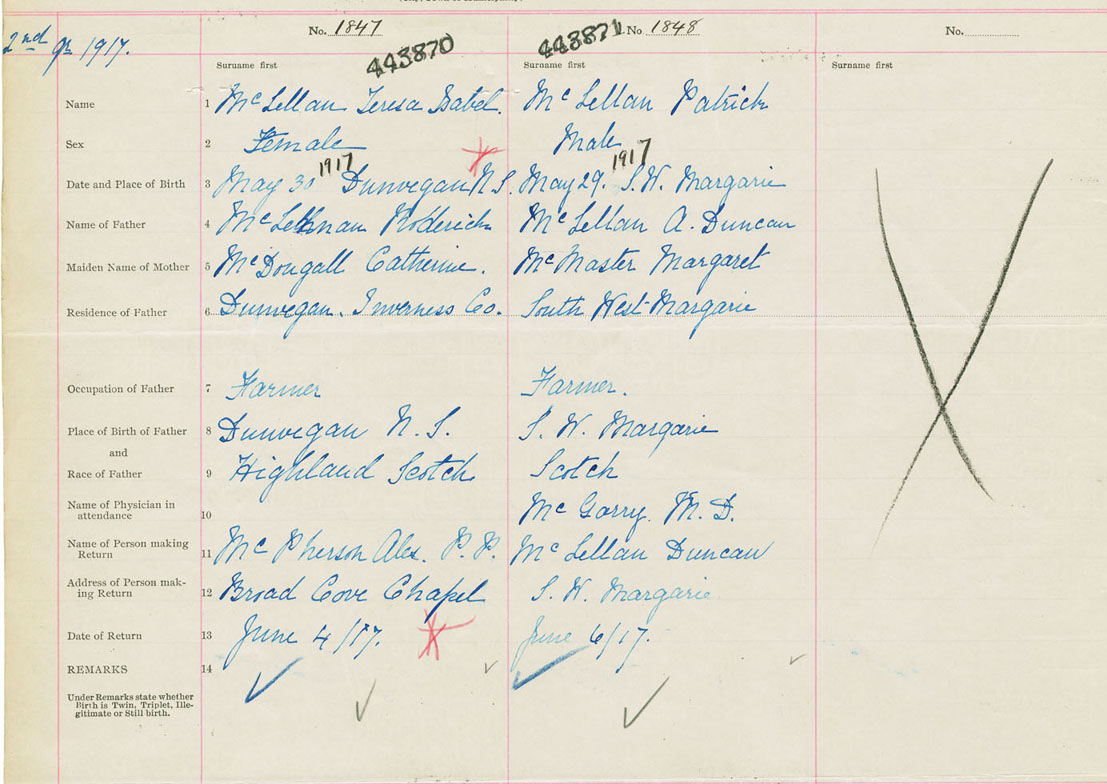 2nd Qr 1917.
No. 1847
443870
443871
No 1848
No.
Surname first
Surname first
Surname first
Name 1 McLellan Teresa Isabel. McLellan Patrick
Sex 2 Female Male
1917 1917
Date and Place of Birth 3 May 30 Dunvegan N.S. May 29. S.W. Margarie
Name of Father 4 Roderick McLellan A. Duncan
Maiden Name of Mother 5 McDougall Catherine. McMaster Margaret
Residence of Father 6 Dunvegan. Inverness Co. South West Margarie
Occupation of Father 7 Farmer Farmer.
Place of Birth of Father 8 Dunvegan N.S. S.W. Margarie
and
Race of Father 9 Highland Scotch Scotch
Name of Physician in
attendance 10 McGarry. M.D.
Name of Person making
Return 11 McPherson Alex. P.P. McLellan Duncan
Address of Person mak-
ing Return 12 Broad Cove Chapel S.W. Margarie
Date of Return 13 June 4/17. June 6/17.
REMARKS 14
Under Remarks state whether
Birth is Twin, Triplet, Ille-
gitimate or Still birth.